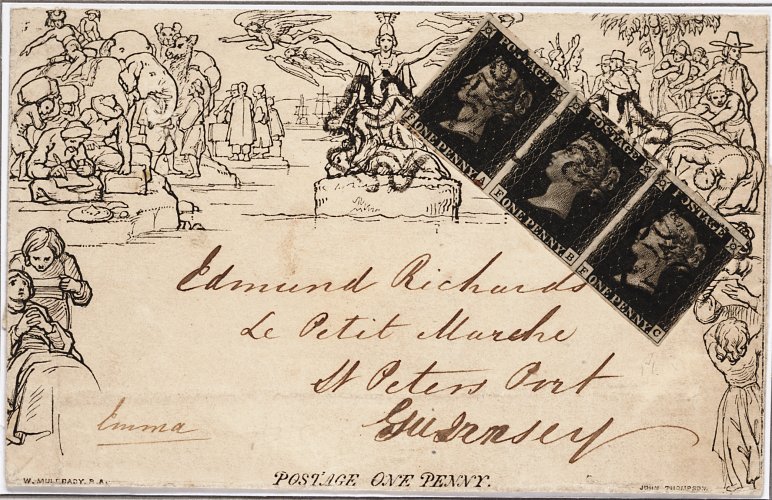 POSTAGE
ONE PENNY
A
POSTAGE
F ONE PENNY B
POSTAGE
F ONE PENNY C
Edmund Richards
Le Petit Marche
St Peters Port
Guernsey
Emma
W. MULREADY. R.A.
POSTAGE ONE PENNY.
JOHN THOMPSON.